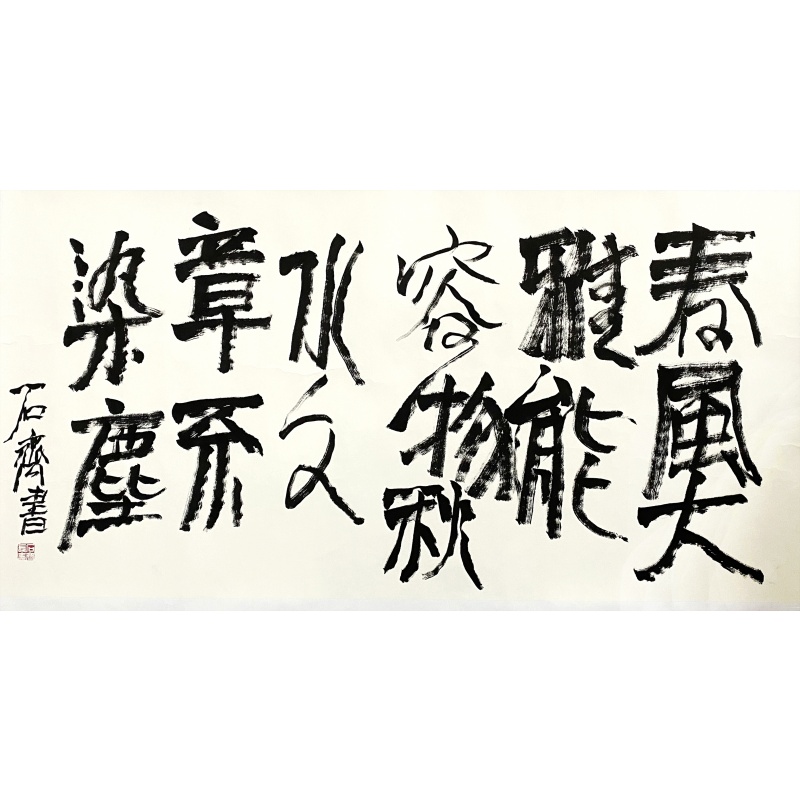 春風大
雅能
容物秋
水文
章不
染塵
石齊書